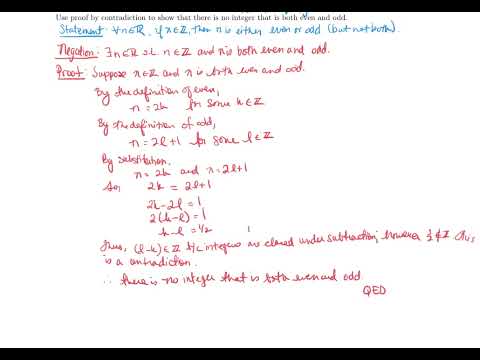 Use proof by contradiction to show that there is no integer that is both even and odd.
Statement: ∀n∈ℝ, if n∈ℤ, then n is either even or odd (but not both).
Negation: ∃n∈ℝ s.t. n∈ℤ and n is both even and odd.
Proof: Suppose n∈ℤ and n is both even and odd.
By the definition of even,
n = 2k for some k∈ℤ
By the definition of odd,
n = 2l+1 for some l∈ℤ
By substitution.
n = 2k and n = 2l+1
So 2k = 2l+1
2k-2l = 1
2(k-l) = 1
k-l = 1/2
Thus, (l-k)∈ℤ b/c integers are closed under subtraction, however ½∉ℤ this
is a contradiction.
∴ there is no integer that is both even and odd
QED